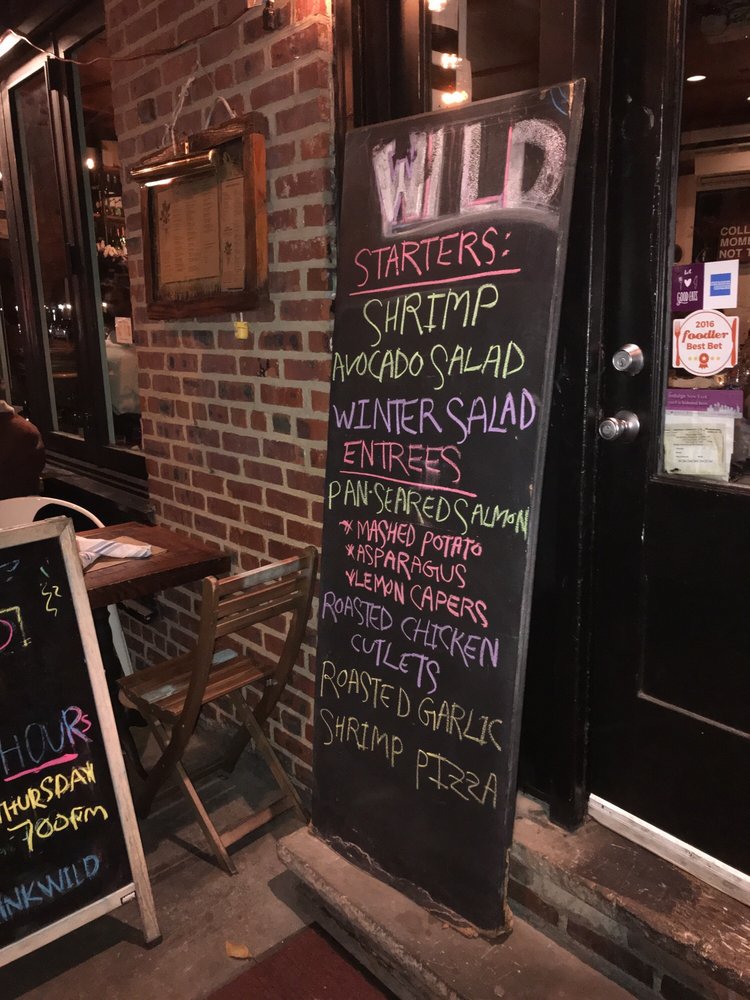 WILD
STARTERS:
SHRIMP
AVOCADO SALAD
WINTER SALAD
ENTREES
PAN-SEARED SALMON
* MASHED POTATO
* ASPARAGUS
* LEMON CAPERS
ROASTED CHICKEN
CUTLETS
ROASTED GARLIC
SHRIMP PIZZA
HOURS
THURSDAY
700PM
INKWILD
COLL
MOM
NOT T
GOOD EATS
2016
foodler
Best Bet